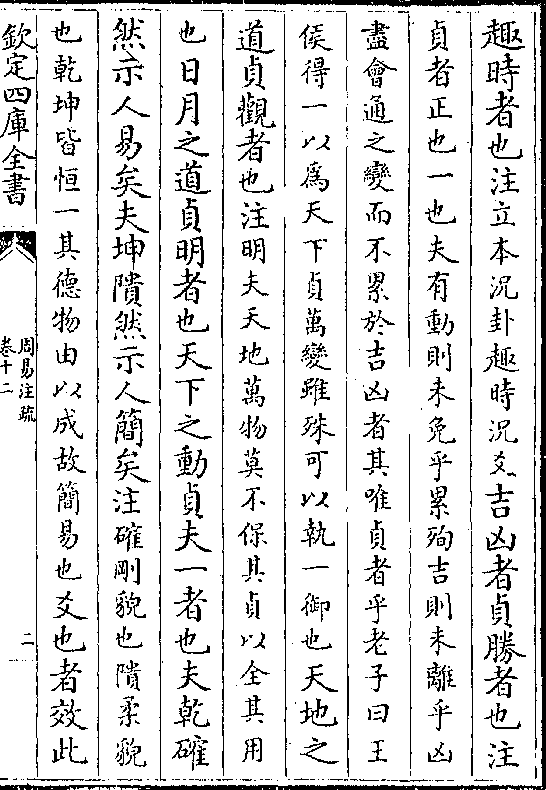 趣時者也注立本況卦趣時況爻吉凶者貞勝者也注
貞者正也一也夫有動則未免乎累殉吉則未離乎凶
盡會通之變而不累於吉凶者其唯貞者乎老子曰王
侯得一以爲天下貞萬變雖殊可以執一御也天地之
道貞觀者也注明夫天地萬物莫不保其貞以全其用
也日月之道貞明者也天下之動貞夫一者也夫乾確
然示人易矣夫坤隤然示人簡矣注確剛貌也隤柔貌
也乾坤皆恒一其德物由以成故簡易也爻也者效此
欽定四庫全書
周易注疏
卷十二
二